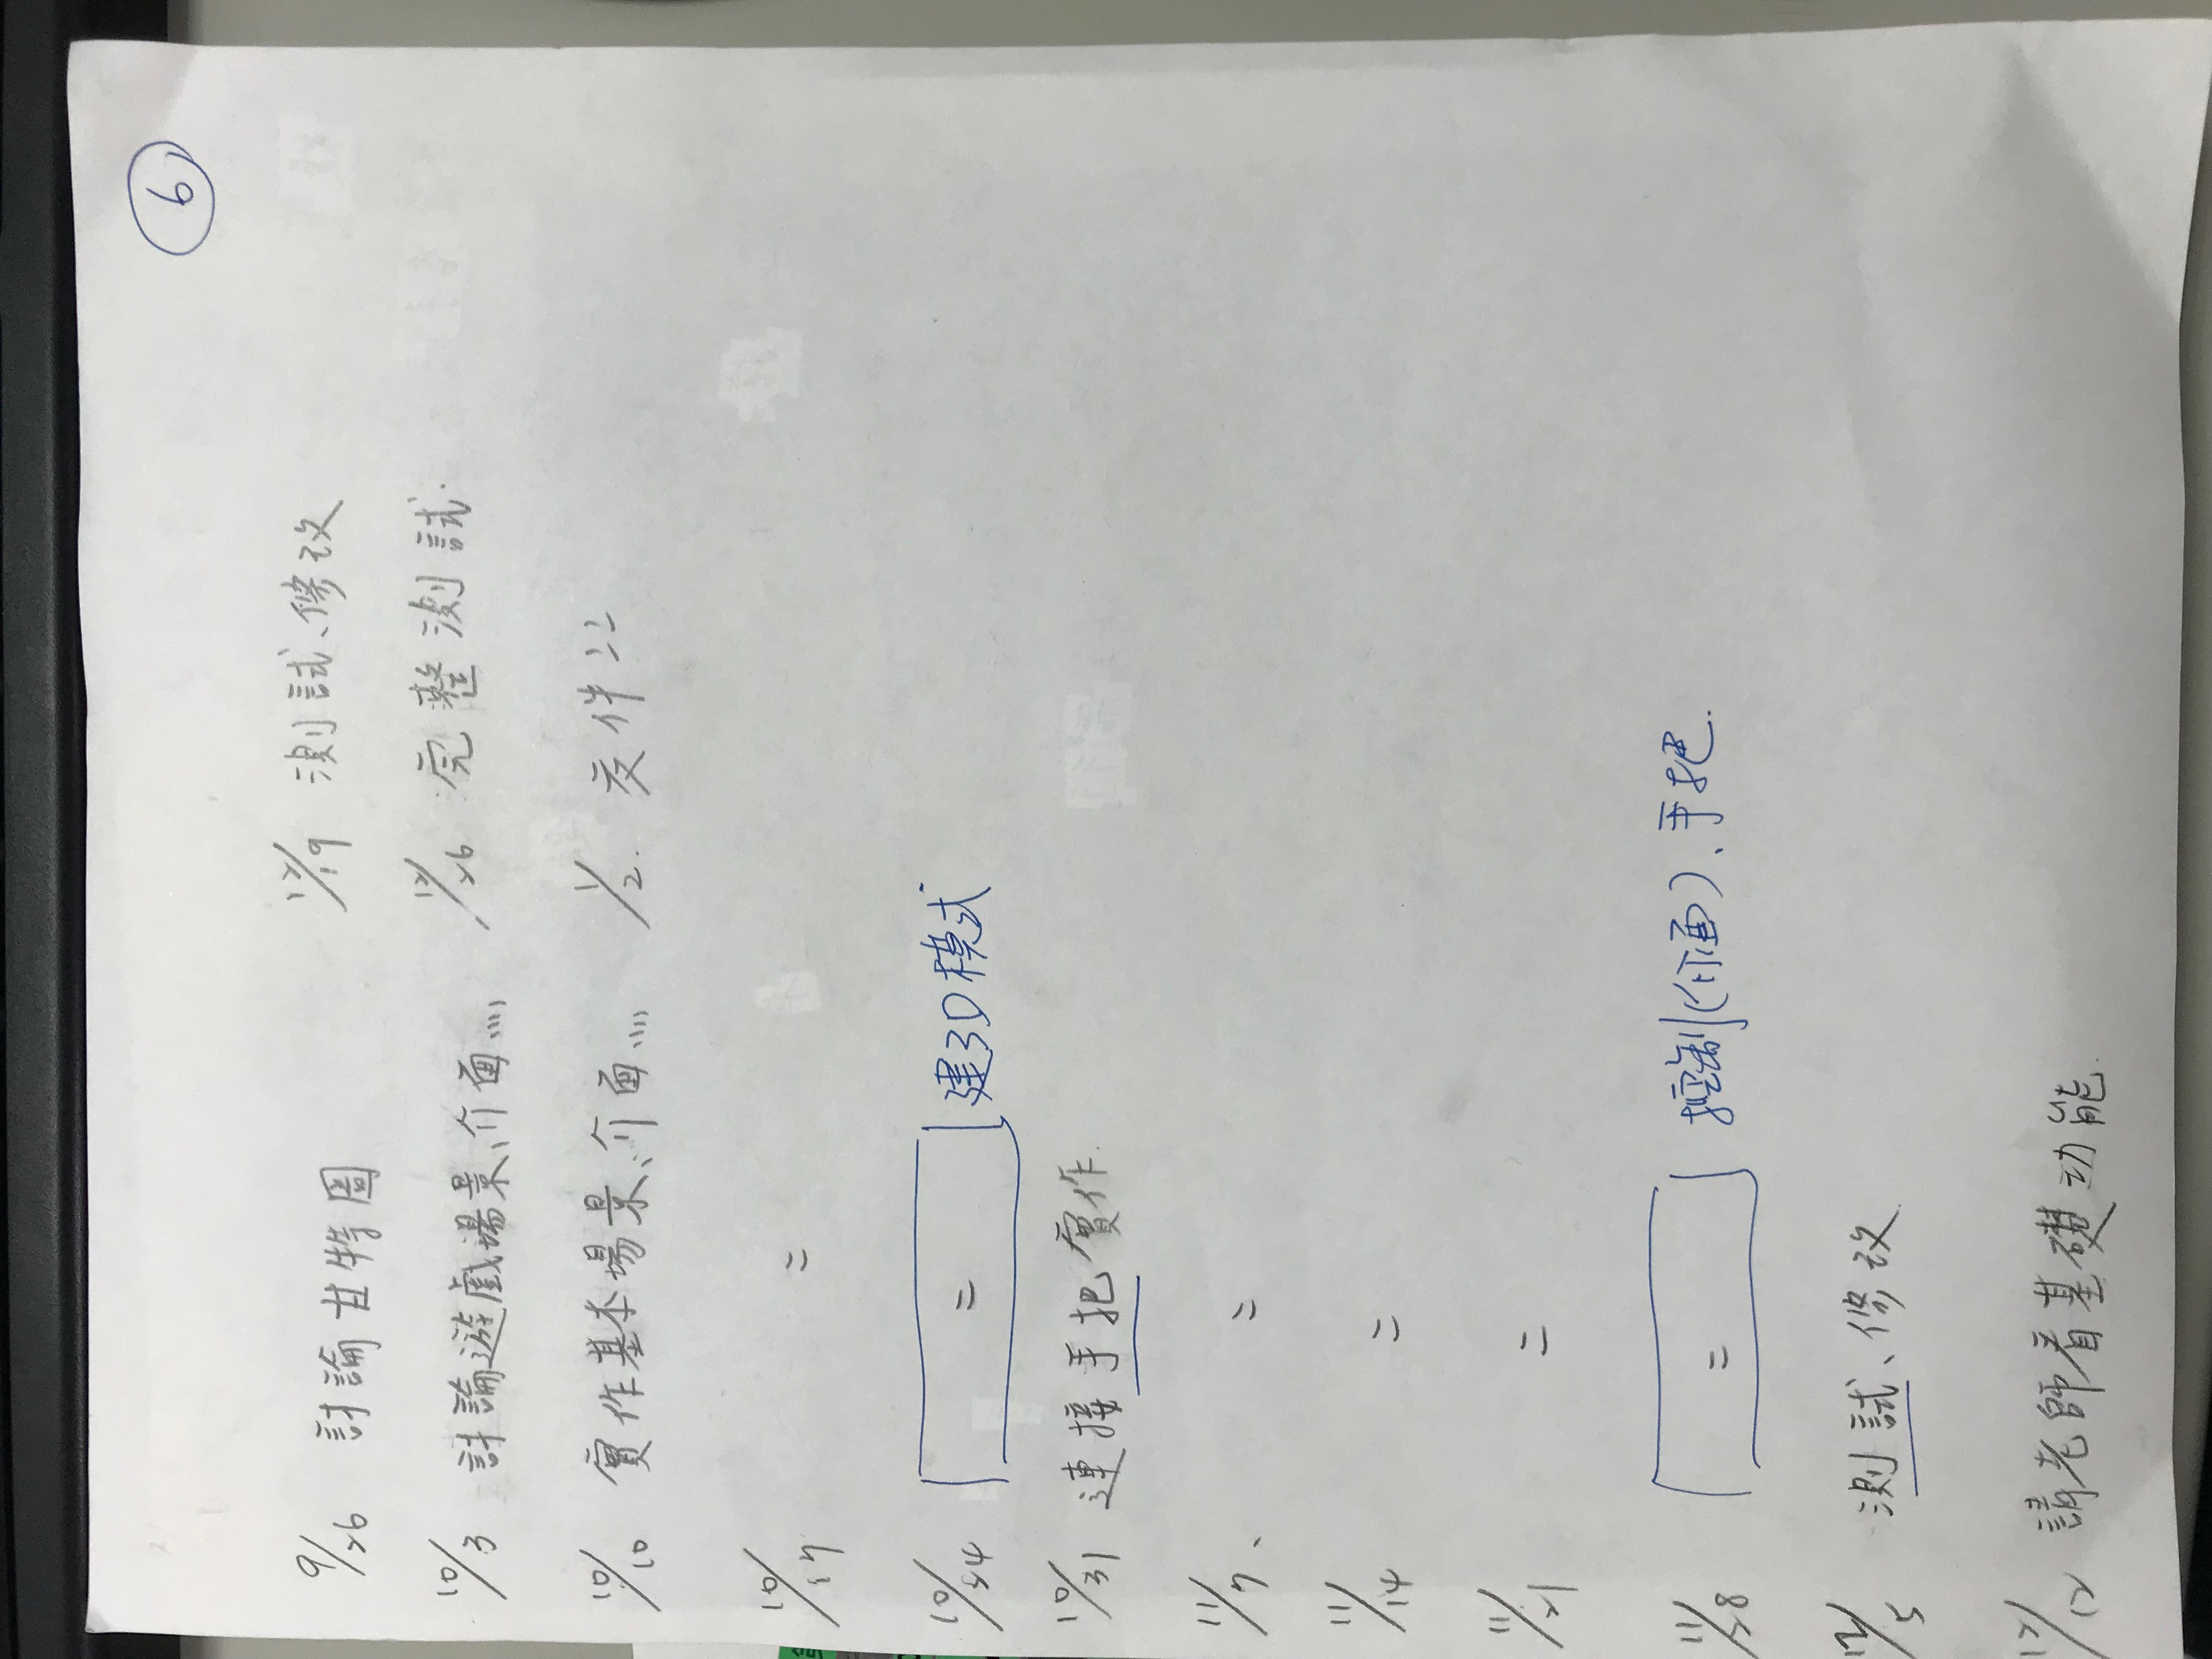 6
9/26 討論甘特圖
10/3 討論遊戲場景、介面....
10/10 實作基本場景、介面....
10/17 =
10/24 = 建3D模式
10/31 連接手把實作.
11/7、 =
11/14 =
11/21 =
11/28 = 控制(介面)、手把.
12/5 測試、修改.
12/12 請老師看基礎功能.
12/19 測試、修改
12/26 完整測試.
1/2. 交件